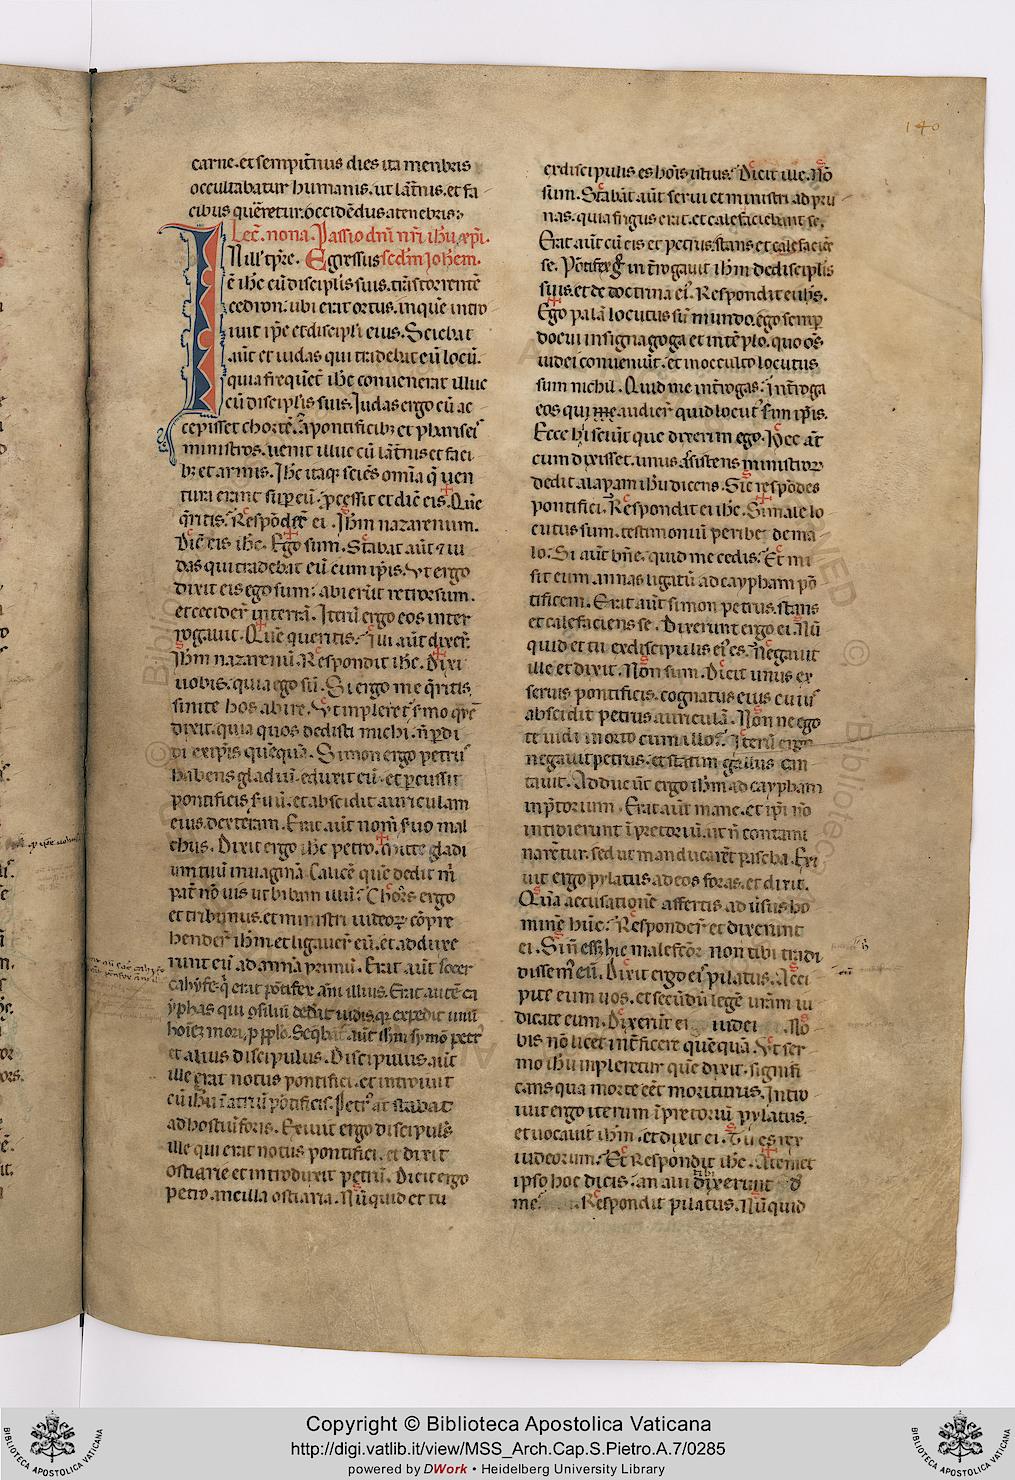 140
carne. et sempit̄nus dies ita menbris
occultabatur humanis. ut lat̄nis. et fa
cibus quēretur. occidēdus a tenebris:
Lec̄. nona. Passio dn̄i nr̄i ih̄u xp̄i.
Nill't̄pr̄e. Egressus sed̄m Ioh̄em.
ē ih̄c cū discipl̄is suis. tn̄s torrentē
cedron. ubi erat ortus. in quē intro
iuit ip̄e et discipl̄i eius. Sciebat
aūt et iudas qui tradebat eū locū.
quia frequēt̄ ih̄c conuenerat illuc
cū discipl̄is suis. Iudas ergo cū ac
cepisset chortē. a pontificib; et phariseis
ministros. uenit illuc cū lat̄nis et faci
b; et armis. Ih̄c itaq; sciēs om̄ia q̄ uen
tura erant sup̄ eū. p̄cessit et dic̄ eis. Quē
q̄ritis. Respōder̄ ei. Ih̄m nazarenum.
Dic̄ eis ih̄c. Ego sum. Stabat aūt & iu
das qui tradebat eū cum ip̄is. Vt ergo
dixit eis ego sum: abierūt retrorsum.
et cecider̄ in terrā. Iterū ergo eos inter
rogauit. Quē queritis. Illi aūt dixer̄.
Ih̄m nazarenū. Respondit ih̄c. Dixi
uobis. quia ego sū. Si ergo me q̄ritis.
sinite hos abire. Vt impleret̄ s̄mo quē
dixit. quia quos dedisti michi. n̄ p̄di
di ex ip̄is quēquā. Simon ergo petru᷒
habens gladiū. eduxit eū. et percussit
pontificis s̄uū. et abscidit auriculam
eius. dexteram. Erat aūt nom̄ s̄uo mal
chus. Dixit ergo ih̄c petro. Mitte gladi
um tuū in uaginā. Calicē quē dedit m̄
pat̄ nō uis ut bibam illū. Chors ergo
et tribunus. et ministri iudeoꝝ cōpre
hender̄ ih̄m. et ligauer̄ eū. et adduxe
runt eū ad annā primū. Erat aūt socer
cayphe. q̄ erat pōtifex anni illius. Erat autē ca
yphas qui ꝯsiliū dedit iudeis. q̄ expedit unū
hoīez mori p̄ pplo. Seq̄bat̄ aūt ih̄m symō petr᷒
et alius discipulus. Discipulus aūt
ille erat notus pontifici. et introiuit
cū ih̄u ī atriū pōtificis. Petr᷒ at̄ stabat
ad hostiū foris. Exiuit ergo discipul᷒
ille qui erat notus pontifici. et dixit
ostiarie et introduxit petrū. Dicit ergo
petro. ancilla ostiaria. Nūquid et tu
ex discipulis es hoīs istius. Dicit ille. Nō
sum. Stabāt aūt serui et ministri ad pru
nas. quia frigus erat. et calefaciebant se.
Erat aūt cū eis et petrus. stans et calefaciē
se. Pōtifex ḡ in̄trogauit ih̄m de discipl̄is
suis. et de doctrina ei᷒. Respondit ei ih̄s.
Ego palā locutus sū mundo. ego semp̄
docui in signagoga et in tēplo. quo om̄s
iudei conueniūt. et in occulto locutus
sum nichil. Quid me in̄trogas. In̄troga
eos qui audier̄ quid locut᷒ sum ip̄is.
Ecce hi sciūt que dixerim ego. Hec at̄
cum dixisset. unus assistens ministroꝝ
dedit alapam ih̄u dicens. Sic respōdes
pontifici. Respondit ei ih̄c. Si male lo
cutus sum. testimoniū peribe de ma
lo. Si aūt bn̄e. quid me cedis. Et mi
sit eum annas ligatū ad caypham pō
tificem. Erat aūt simon petrus. stans
et calefaciens se. Dixerunt ergo ei. Nū
quid et tu ex discipulis ei᷒ es. Negauit
ille et dixit. Non sum. Dicit unus ex
seruis pontificis. cognatus eius cui᷒
abscidit petrus auriculā. Non ne ego
te uidi in orto cum illo. Iterū ergo
negauit petrus. et statim gallus can
tauit. Adducūt ergo ih̄m ad caypham
in p̄torium. Erat aūt mane. et ip̄i nō
introierunt ī pretoriū. ut n̄ contami
narētur. sed ut manducarēt pascha. Exi
uit ergo pylatus ad eos foras. et dixit.
Quā accusationē affertis. ad u̓sus ho
minē hūc. Responder̄ et dixerunt
ei. Si n̄ ess; hic malefc̄or. non tibi tradi
dissem᷒ eū. Dixit ergo eis pilatus. Acci
pite eum uos. et secūdū legē uram̄ iu
dicate eum. Dixerūt ei iudei. No
bis nō licet int̄ficere quēquā. Vt ser
mo ih̄u inpleretur quē dixit. signifi
cans qua morte eēt moriturus. Intro
iuit ergo iterum ī pretoriū pylatus.
et uocauit ih̄m. et dixit ei. Tu es rex
iudeorum. Et Respondit ih̄c. A temet
ipso hoc dicis. an alii tibi dixerunt d̄
me. Respondit pilatus. Nūquid
Copyright © Biblioteca Apostolica Vaticana
http://digi.vatlib.it/view/MSS_Arch.Cap.S.Pietro.A.7/0285
powered by DWork • Heidelberg University Library
BIBLIOTECA APOSTOLICA VATICANA
BIBLIOTECA APOSTOLICA VATICANA